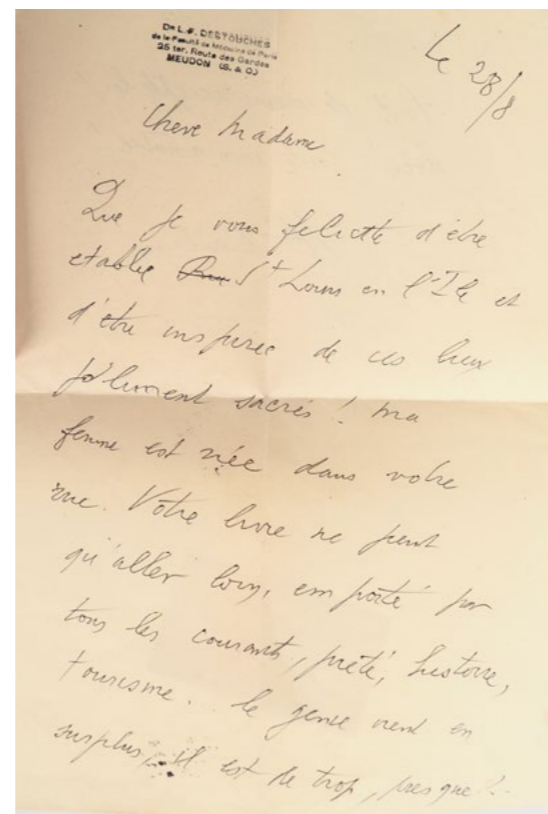 Dr L.-F. DESTOUCHES
de la Faculté de Médecine de Paris
25 ter, Route des Gardes
MEUDON (S. & O.)
Le 28/8
Chere Madame
Que je vous felicite d'être
etablie Rue St Louis en l'Ile et
d'être inspiree de ces lieux
joliment sacrés ! Ma
femme est née dans votre
rue. Votre livre ne peut
qu'aller loin, emporté par
tous les courants, piété, histoire,
tourisme. le genie vient en
surplus, il est de trop, presque !